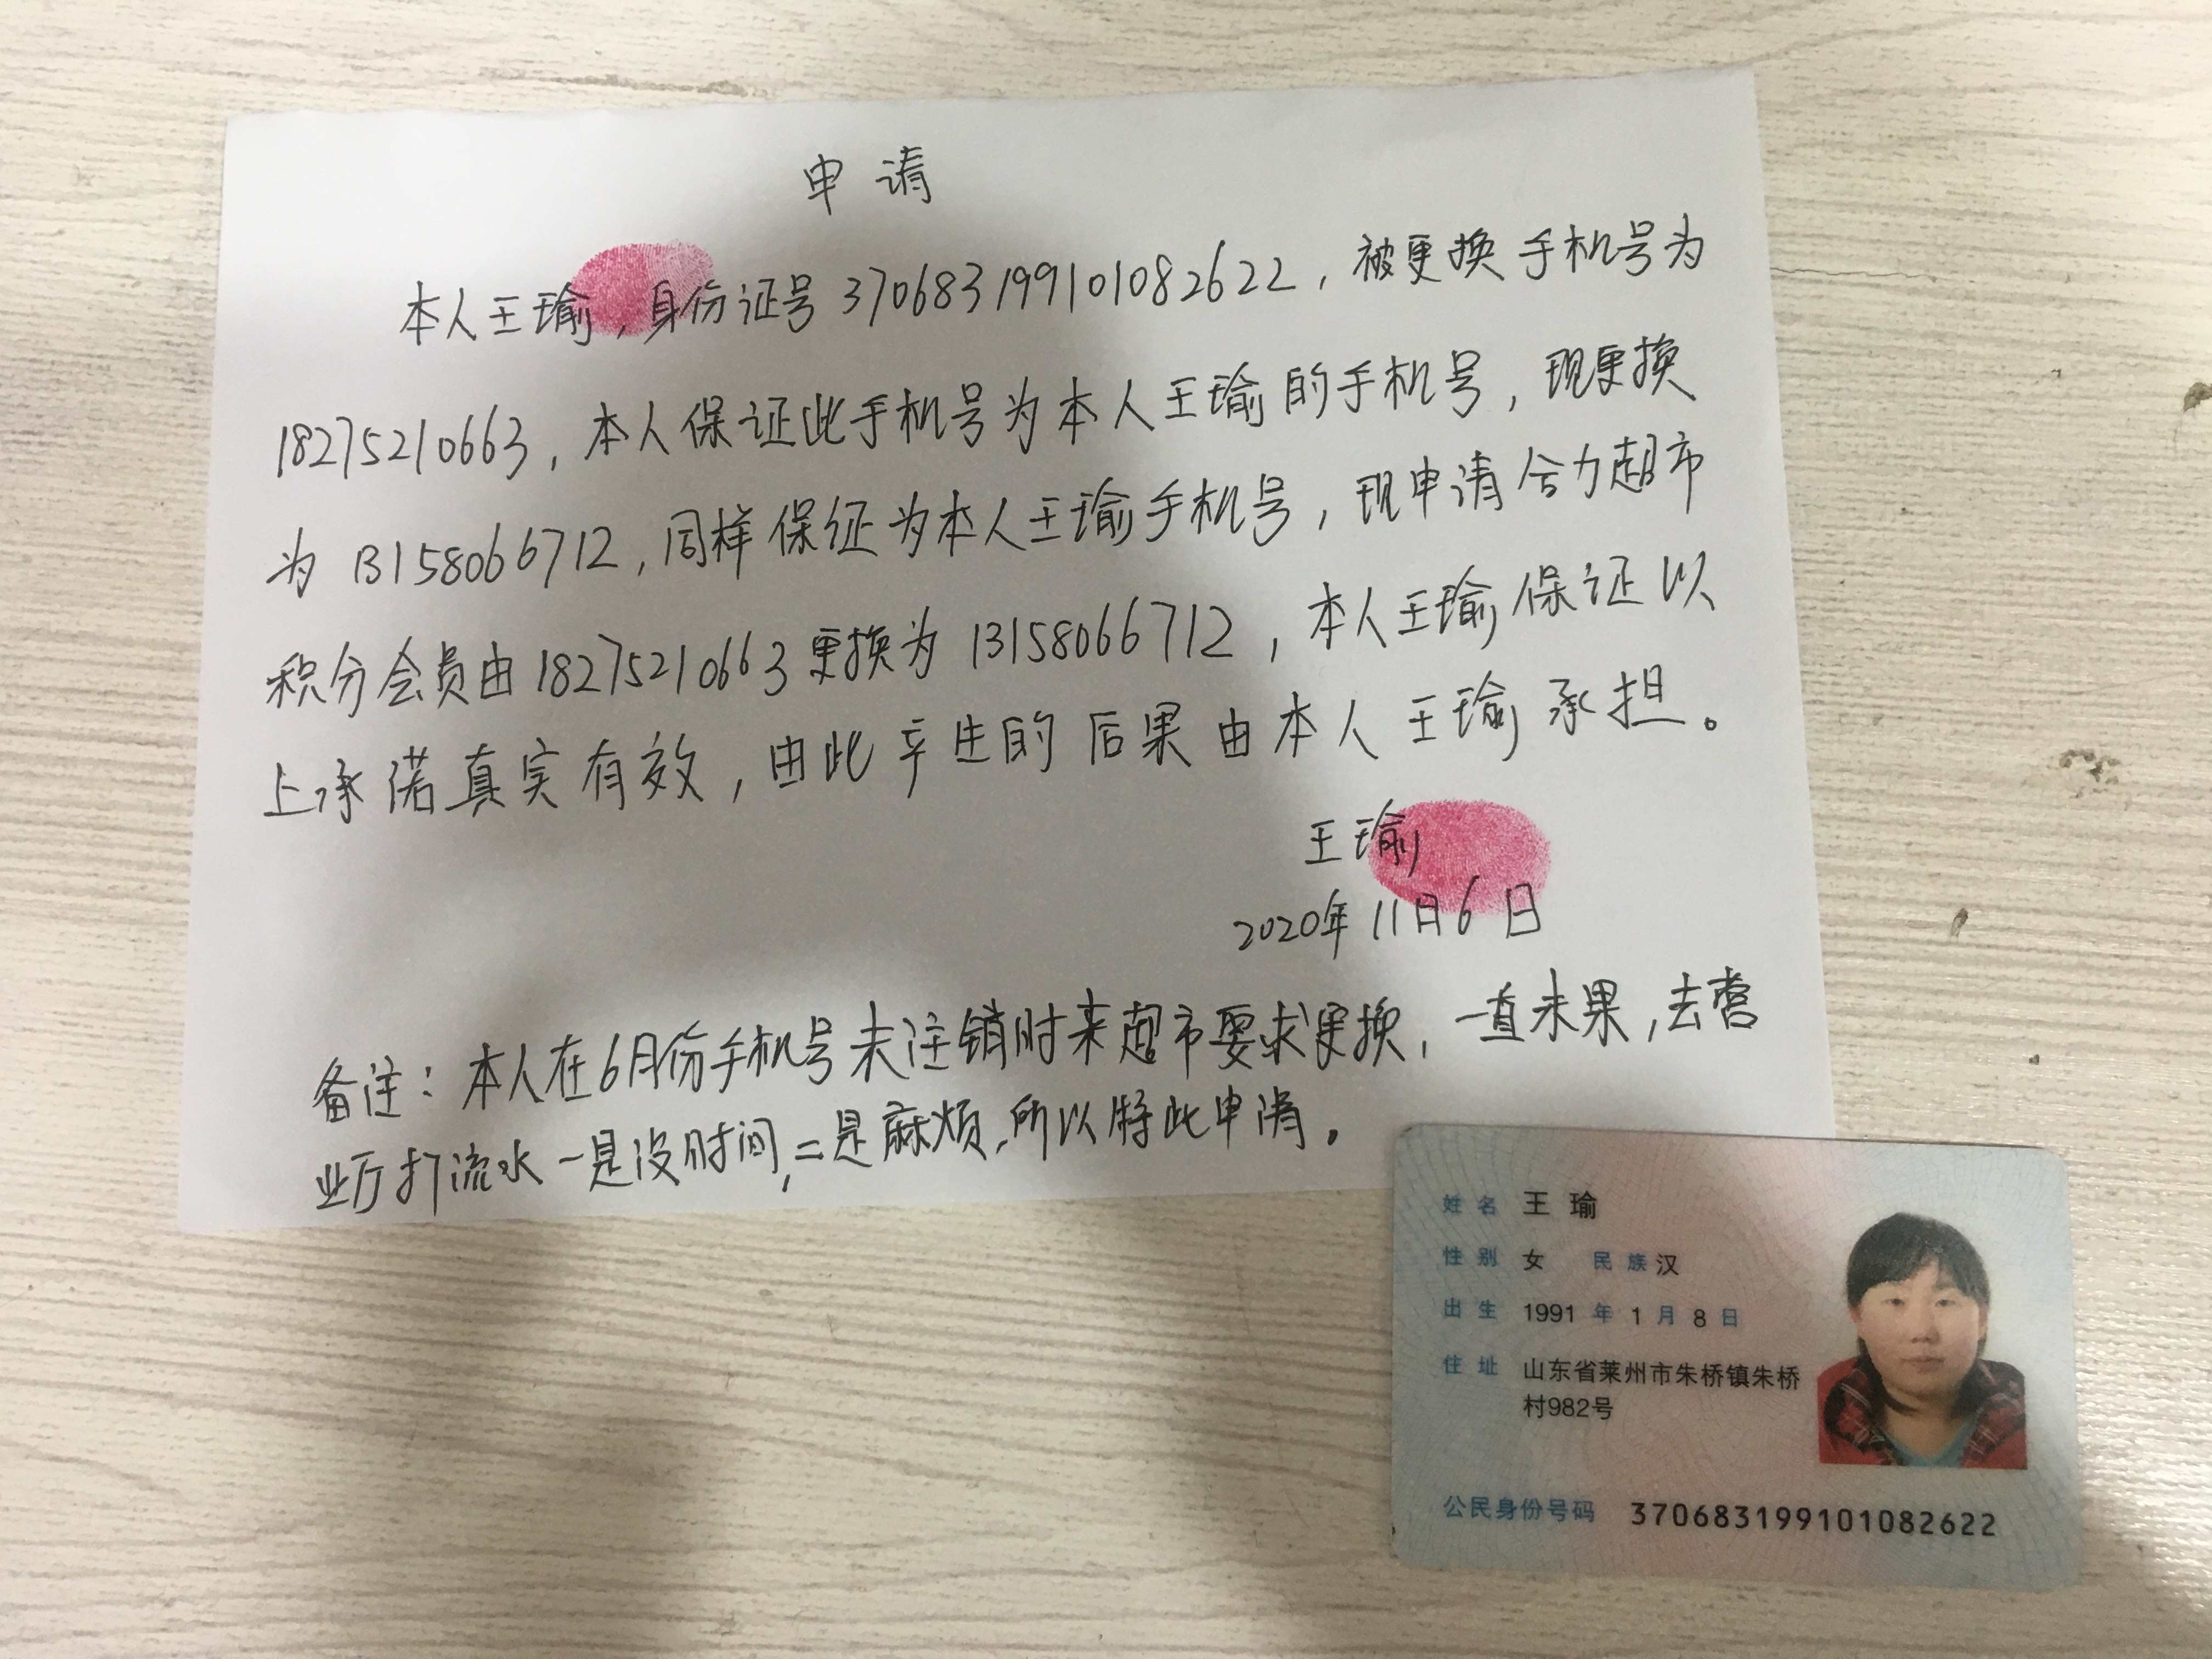 申请
本人王瑜，身份证号370683199101082622，被更换手机号为
18275210663，本人保证此手机号为本人王瑜的手机号，现更换
为13158066712，同样保证为本人王瑜手机号，现申请合力超市
积分会员由18275210663更换为13158066712，本人王瑜保证以
上承诺真实有效，由此产生的后果由本人王瑜承担。
王瑜
2020年11月6日
备注：本人在6月份手机号未注销时来超市要求更换，一直未果，去营
业厅打流水一是没时间，二是麻烦，所以特此申请。
姓名 王瑜
性别 女 民族 汉
出生 1991年1月8日
住址 山东省莱州市朱桥镇朱桥
村982号
公民身份号码 370683199101082622